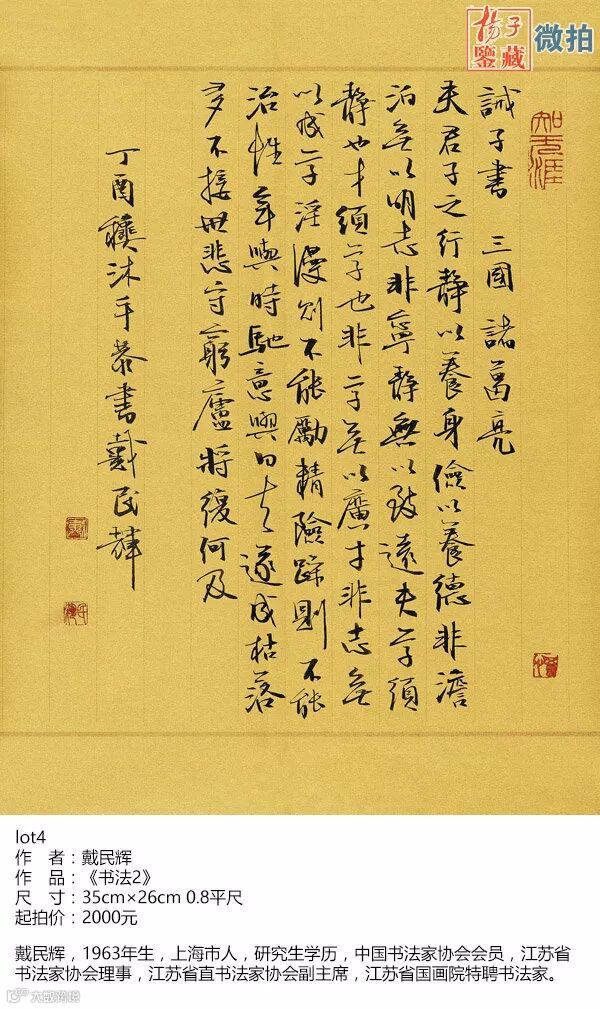 楊子
鑒藏
微拍
知无涯
誡子書 三國 諸葛亮
夫君子之行靜以養身儉以養德非澹
泊無以明志非寧靜無以致遠夫學須
靜也才須學也非學無以廣才非志無
以成學淫漫則不能勵精險躁則不能
治性年與時馳意與日去遂成枯落
多不接世悲守窮廬將復何及
丁酉 沐手恭書戴民輝
lot4
作 者：戴民辉
作 品：《书法2》
尺 寸：35cm×26cm 0.8平尺
起拍价：2000元
戴民辉，1963年生，上海市人，研究生学历，中国书法家协会会员，江苏省
书法家协会理事，江苏省直书法家协会副主席，江苏省国画院特聘书法家。